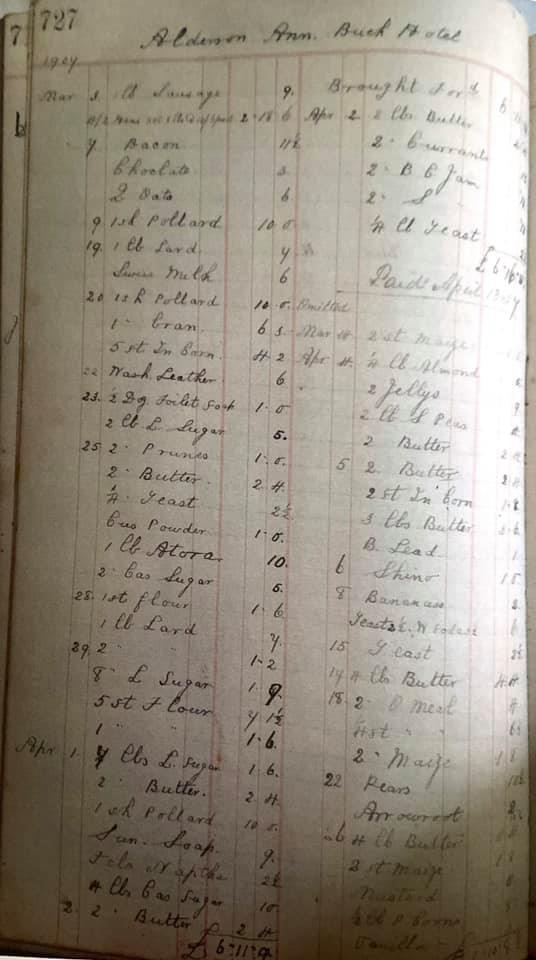 7
727
Alderson Ann. Buck Hotel
1904
Mar 3. 1 lb Sausage 9.
2-18 6
7 Bacon 11½
Choclate 3.
2 Oats 6.
9 1 sk Pollard 10 0.
19. 1 lb Lard 7
Swiss Milk 6
20 1 sk Pollard 10. 0.
1 " Bran. 6 3.
5 st In Corn. 4 2
22 Wash Leather 6.
23. ½ Dg. Toilet Soap 1. 0
2 lb L. Sugar 5.
25 2 " Prunes 1. 0.
2 " Butter. 2 4.
¼ " Yeast 2½
Cus Powder 1. 0.
1 lb Atora 10.
2 " Cas Sugar 5.
28. 1 st flour 1. 6
1 lb Lard 7.
29. 2 " " 1. 2
8 " L Sugar 1. 9.
5 st Flour 7 1½
1 " " 1. 6.
Apr 1. 7 lbs L. Sugar 1. 6.
2 " Butter. 2 4.
1 sk Pollard 10 0.
Sun. Soap. 9.
Fels Naptha 2½
4 lbs Cas Sugar 10.
2. 2 " Butter 2 4
£ 6-11-9
Brought For'd 6
Apr 2. 2 lbs Butter
2 " Currants
2 " B C Jam
2 " S "
¼ lb Yeast
£ 6-16-
Paid April
Omitted
Mar 2 st Maize
Apr 4. ¼ lb Almond
2 Jellys
2 lb S Peas
2 Butter
5 2 " Butter
2 st In Corn
3 lbs Butter
B. Lead
6 Shino
8 Bananas
Yeast
15 Yeast 2½
17 4 lbs Butter 4.4.
18. 2 " O Meal 4
4 st " "
2 " Maize 1 8
22 Pears
Arrowroot
26 4 lb Butter
2 st Maize
Mustard
Vanilla